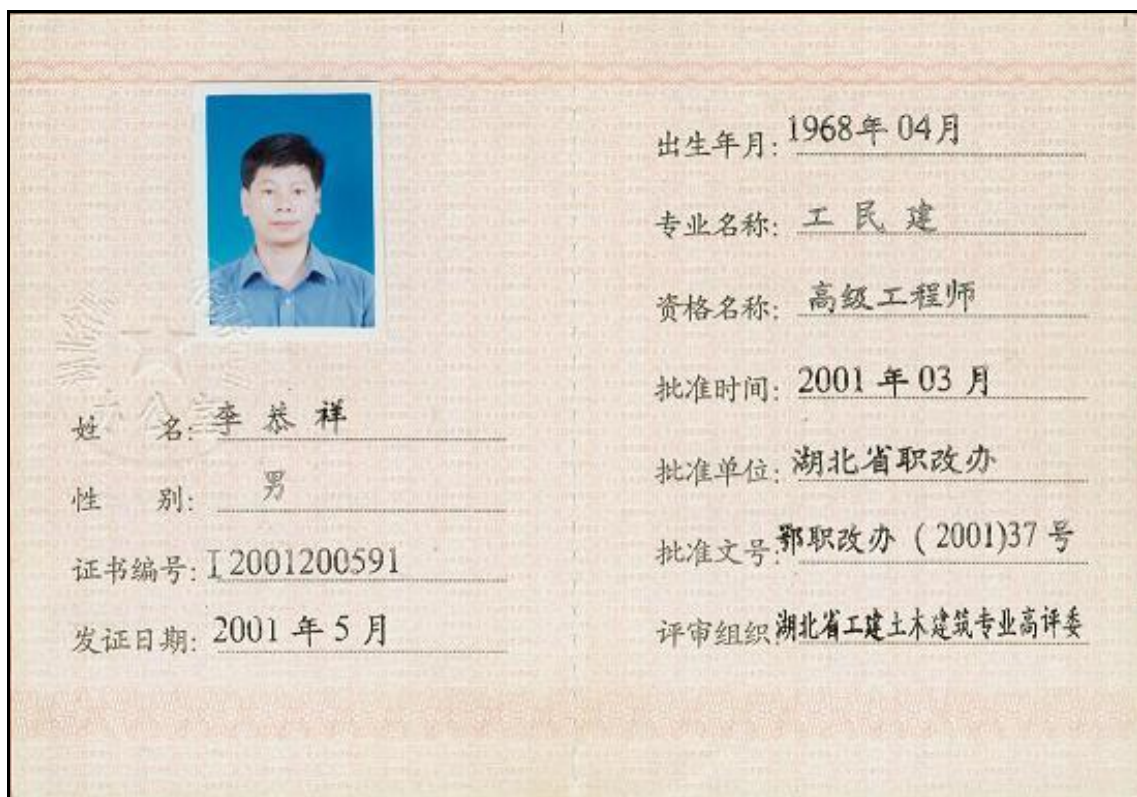 姓 名: 李恭祥
性 别: 男
证书编号: I2001200591
发证日期: 2001 年 5 月
出生年月: 1968年 04月
专业名称: 工 民 建
资格名称: 高级工程师
批准时间: 2001 年 03 月
批准单位: 湖北省职改办
批准文号: 鄂职改办 ( 2001)37 号
评审组织 湖北省工建土木建筑专业高评委
办公室